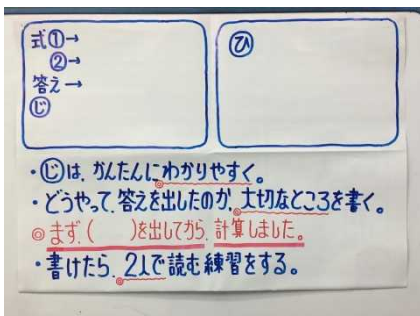 式①→
②→
答え→
じ
ひ
・じは、かんたんにわかりやすく。
・どうやって、答えを出したのか、大切なところを書く。
◎まず、(　　)を出してから、計算しました。
・書けたら、2人で読む練習をする。